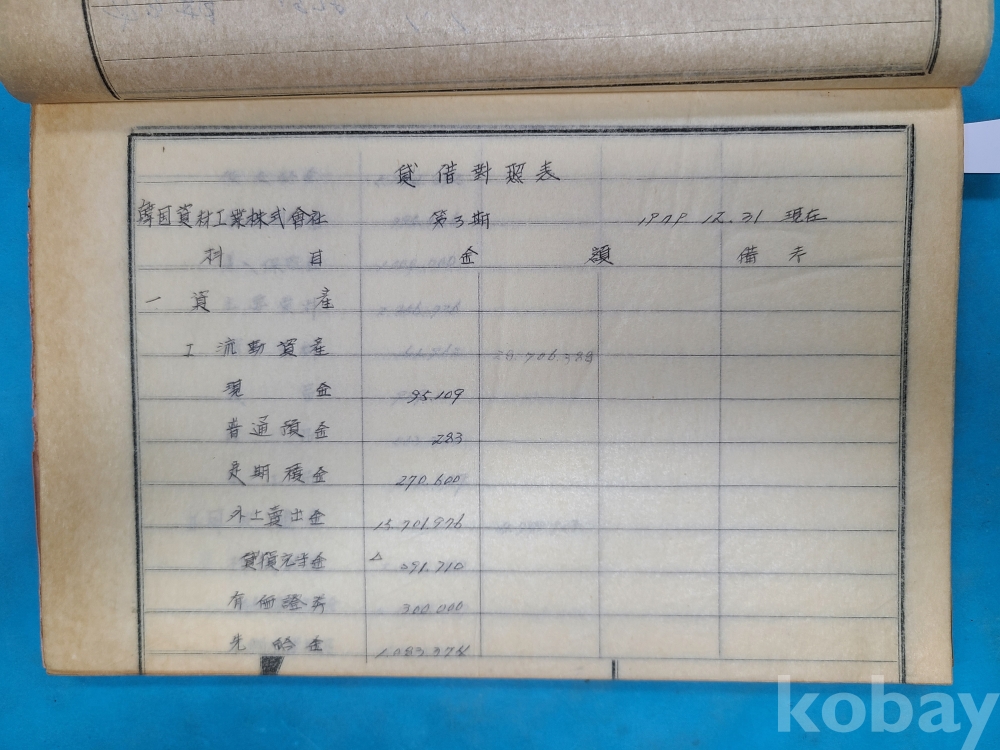 貸借對照表
韓国資材工業株式會社 第3期 1979 12.31 現在
科目 金額 備考
一 資産
I 流動資産 28.706.388
現金 95.109
普通預金 283
定期積金 270.600
外上賣出金 15.701.976
△ 391.710
有価證券 300.000
先給金 1.083.374
kobay